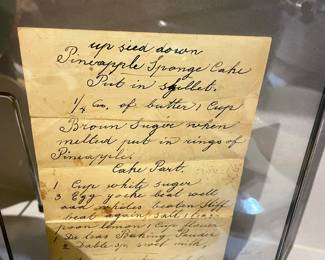 up sied down
Pineapple Sponge Cake
Put in skillet.
1/4 lb. of butter 1 Cup
Broun Sugar when
melted put in rings of
Pineapple.
Cake Part.
1 Cup white suger
3 Egg yocke beat well
beaten stiff
beat again, salt 1 tea
poon lemon 1 Cup flower
1 Baking Pouder
2 Table sp